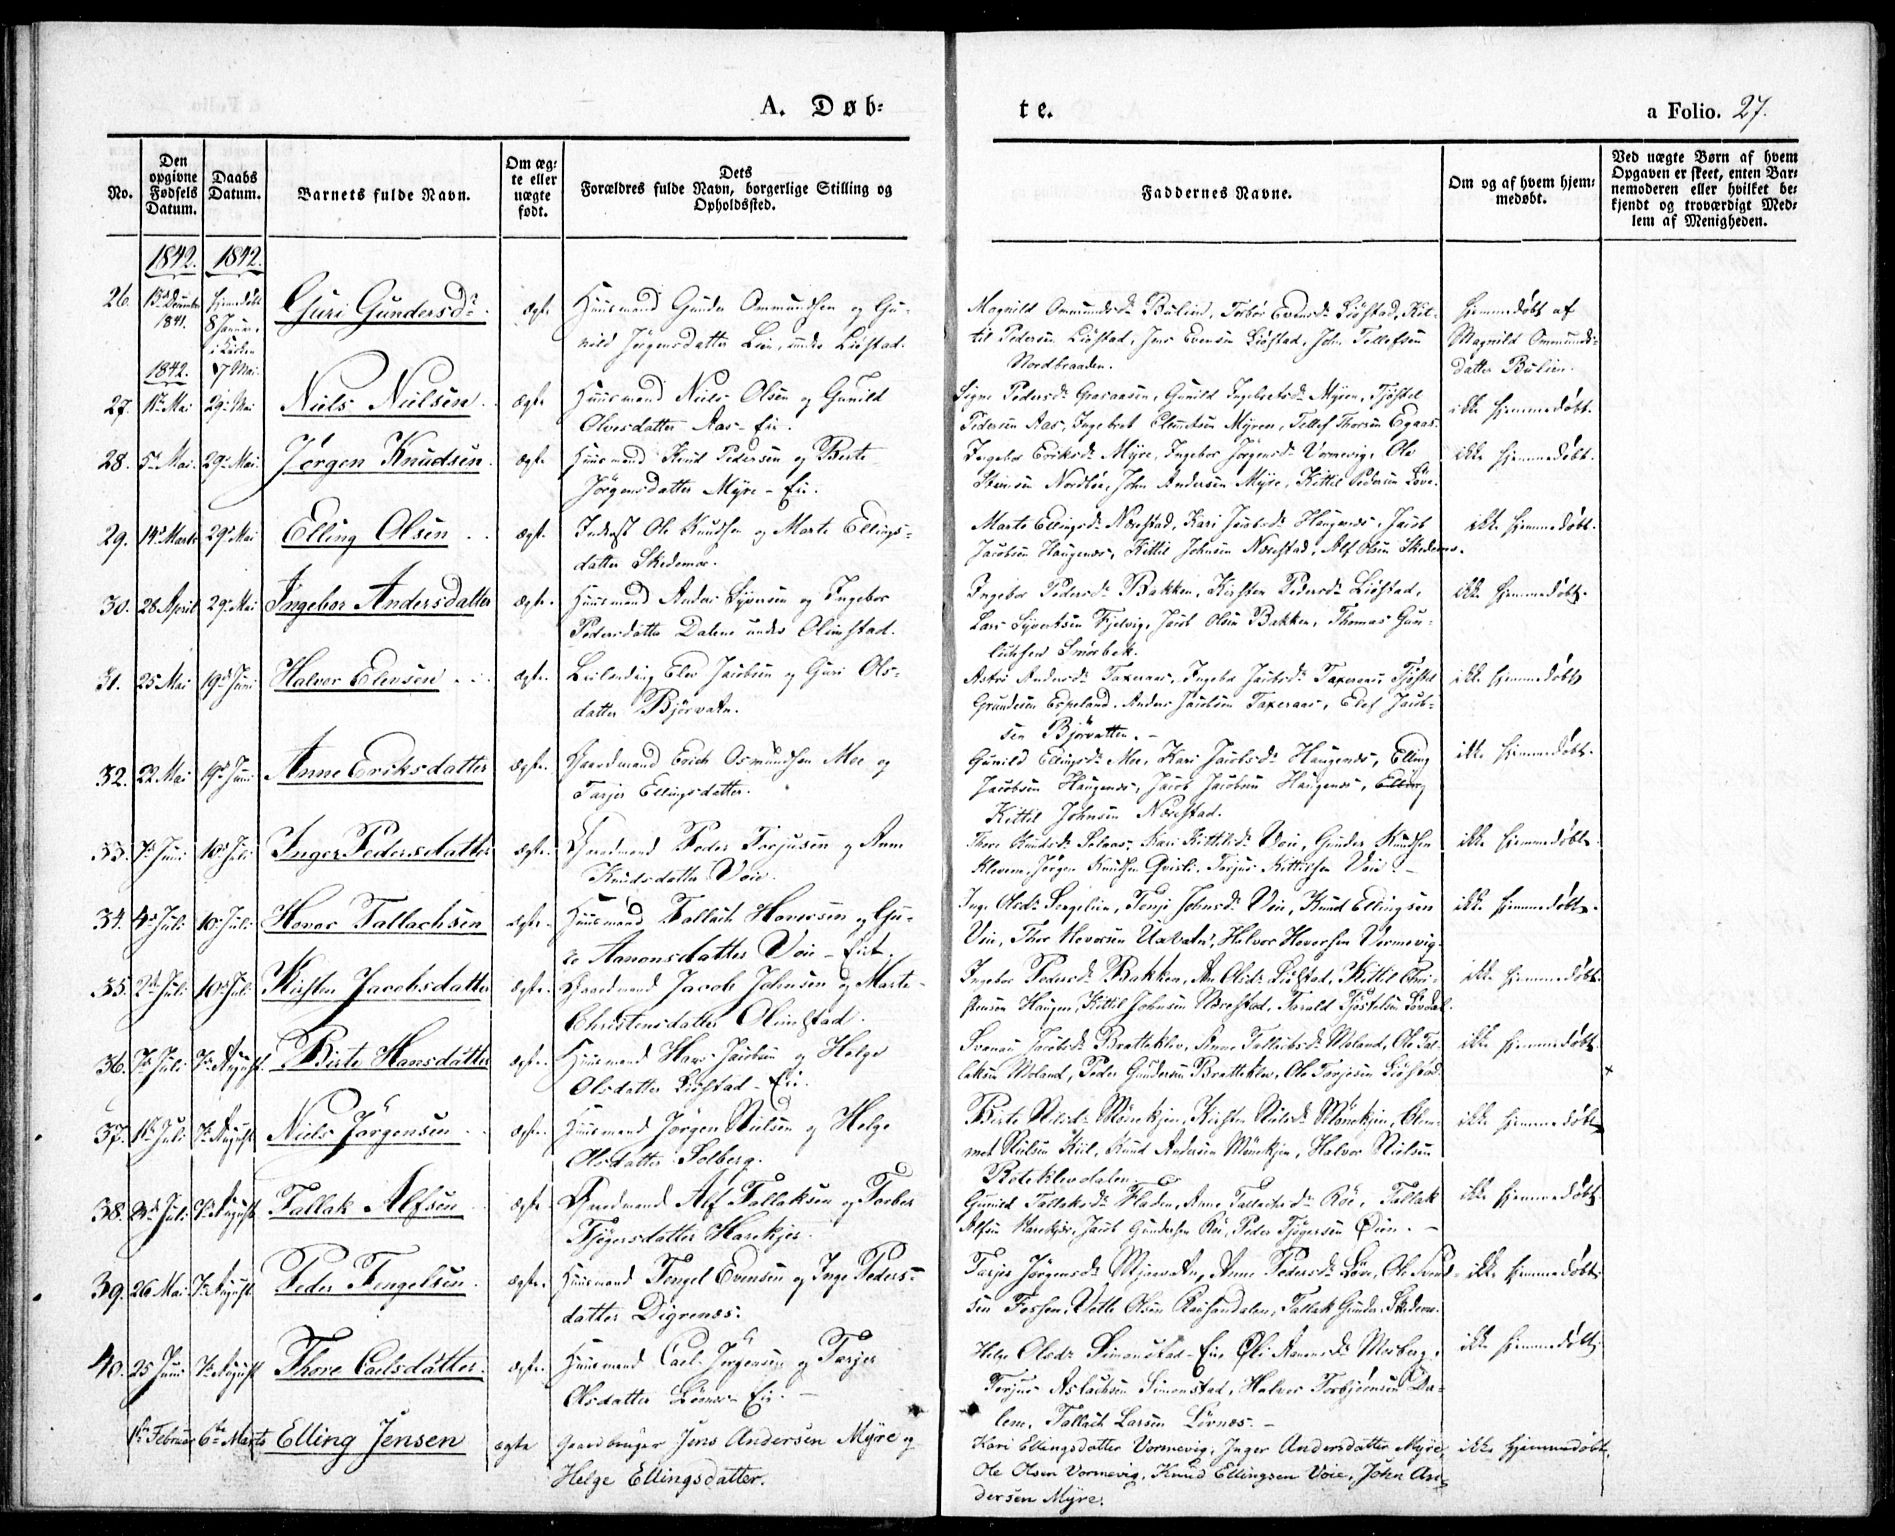 A. Døb:
te.
a Folio. 27.
No.
Den
opgivne
Fødsels
Datum.
Daabs
Datum.
Barnets fulde Navn.
Om æg:
te eller
uægte
født.
Dets
Forældres fulde Navn, borgerlige Stilling og
Opholdssted.
Faddernes Navne.
Om og af hvem hjem:
medøbt.
Ved uægte Børn af hvem
Opgaven er skeet, enten Bar:
nemoderen eller hvilket be:
kjendt og troværdigt Med:
lem af Menigheden.
1842. 1842.
26. 1841. 8 Januar Guri Gundersdr. ægte Huusmand Gunder Ommundsen og Gu-
nild Jörgensdatter Lien, under Liöstad.
Magnild Ommundsdr Bulien, Torbor Evensdr Liöstad, Kit-
til Pedersen Liöstad, Jens Evensen Liöstad, John Tellefsen
Nordbraaden.
hjemmedøbt af
Magnild Ommunds-
datter Bulien.
1842. 7 Mai.
27. 1ste Mai 29de Mai Niels Nielsen. ægte Huusmand Niels Olsen og Gunild
Olvesdatter Aas-Eie.
Signe Pedersdr Graaaasen, Gunild Ingebretsdr Myren, Tjöstel
Pedersen Aas, Ingebret Clemetsen Myren, Tellef Thorsen Egaas.
ikke hjemmedøbt.
28. 5te Mai 29de Mai. Jörgen Knudsen. ægte Huusmand Knud Pedersen og Berte
Jörgensdatter Myre-Eie.
Ingebor Eriksdr Myre, Ingebor Jörgensdr Vormevig, Ole
Nordböe, John Andersen Myre, Kittil Pedersen Löve.
ikke hjemmedøbt.
29. 14de Marts 29de Mai Elling Olsen ægte Inderst Ole Knudsen og Marte Ellings-
datter Skedemoe.
Marte Ellingsdr Nærestad, Kari Jacobsdr Haugenæs, Jacob
Jacobsen Haugenæs, Kittil Johnsen Nærestad, Alf Olsen Skedemo.
ikke hjemmedøbt.
30. 28 April 29de Mai Ingebor Andersdatter ægte Huusmand Anders Syversen og Ingebor
Pedersdatter Dalene under Olimstad.
Ingebor Pedersdr Bakken, Kirsten Pedersdr Liöstad,
Lars Syvertsen Fjelvig, Jacob Olsen Bakken, Thomas Gun-
Smörbek.
ikke hjemmedøbt.
31. 25 Mai 19de Juni Halvor Elevsen ægte Leilænding Elev Jacobsen og Guri Ols-
datter Björvatn.
Astri Andersdr Taxeraas, Ingebor Jacobsdr Taxeraas, Tjöstel
Grundesen Espeland, Anders Jacobsen Taxeraas, Elef Jacob-
sen Björvatten.
ikke hjemmedøbt
32. 22. Mai 19de Juni Anne Eriksdatter ægte. Gaardmand Erich Osmundsen Moe og
Tarjer Ellingsdatter.
Gunild Ellingsdr Moe, Kari Jacobsdr Haugenæs, Elling
Jacobsen Haugenæs, Jacob Jacobsen Haugenæs, Elling
Kittil Johnsen Nærestad.
ikke hjemmedøbt.
33. 7de Juni 10de Juli Inger Pedersdatter ægte. Gaardmand Peder Tarjusen og Anne
Knudsdatter Voie.
Thore Knudsdr Selaas, Kari Kittilsdr Voie, Gunder Knudsen
Klevene, Jörgen Knudsen Qvisli, Tarjus Kittilsen Voie.
ikke hjemmedøbt.
34. 4de Juli 10de Juli Hovor Tallachsen ægte. Huusmand Tallach Hovorsen og Gu-
ro Aanonsdatter Voie-Eie.
Inge Olsdr Tonje Johnsdr Voie, Knud Ellingsen
Voie, Thor Hovorsen Uxvatn, Halvor Hovorsen Vormevig
ikke hjemmedøbt.
35. 2de Juli 10de Juli Kirsten Jacobsdatter ægte. Gaardmand Jacob Johnsen og Marte
Christensdatter Olimstad.
Ingebor Pedersdr Bakken, An Olsdr Liöstad, Kittil Chri-
stensen Haugen, Kittil Johnsen Nærestad, Tarald Tjöstelsen Lövdal.
ikke hjemmedøbt.
36. 7de Juli 7de August Birte Hansdatter ægte. Huusmand Hans Jacobsen og Helge
Olsdatter Liöstad-Eie.
Jacobsdr Bratteklev, Anne Tallaksdr Moland, Ole Tal-
laksen Moland, Peder Gundersen Bratteklev, Ole Torjesen Liöstad.
ikke hjemmedøbt.
37. 1ste Juli 7de August Niels Jörgensen ægte. Huusmand Jörgen Nielsen og Helge
Olsdatter Solberg.
Birte Nilsdr Mönekjen, Kirsten Nilsdr Mönekjen, Clem-
met Nielsen Kiil, Knud Andersen Mönekjen, Halvor Nielsen
Roteklevdalen.
ikke hjemmedøbt
38. 3de Juli 7de August Tallak Alfsen ægte Gaardmand Alf Tallaksen og Torbor
Tjögersdatter Harekjer.
Gunild Tallaksdr Fladen, Anne Tallachsdr Röe, Tallak
Alfsen Harekjer, Jacob Gundersen Röe, Peder Tjögersen Öien.
ikke hjemmedøbt
39. 26 Mai 7de August Peder Tengelsen ægte. Huusmand Tengel Evensen og Inge Peders-
datter Digrenæs.
Tarjer Jörgensdr Mjaavatn, Anne Pedersdr Löve, Ole
sen Fossen, Vetle Olsen Tallak Gunders. Skedemo.
ikke hjemmedøbt
40. 25 Juni 7de August Thore Carlsdatter. ægte. Huusmand Carl Jörgensen og Tarjer
Olsdatter Eie.
Helge Olsdr Simonstad-Eie, Oli Aanonsdr Mosberg,
Torjus Aslachsen Simonstad, Halvor Torbjörnsen Da-
lene, Tallach Larsen Lövnæs.
ikke hjemmedøbt
1ste Februar 6te Marts Elling Jensen ægte Gaardbruger Jens Andersen Myre og
Helge Ellingsdatter.
Kari Ellingsdatter Vormevig, Inger Andersdatter Myre,
Ole Olsen Vormevig, Knud Ellingsen Voie, John An-
dersen Myre.
ikke hjemmedøbt.